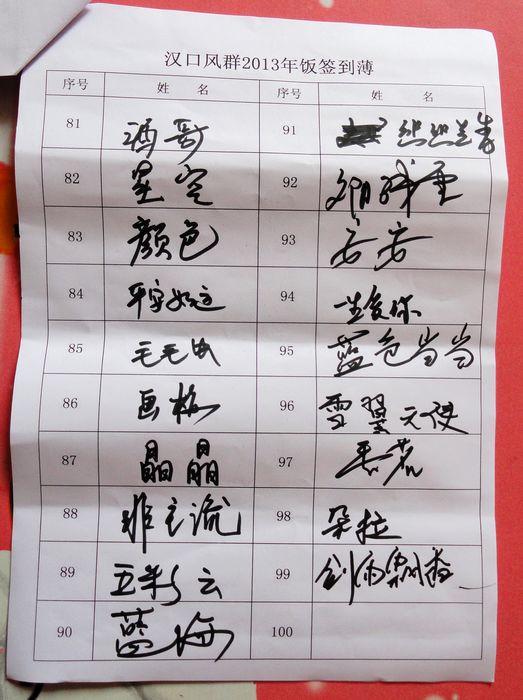 汉口风群2013年饭签到薄
序号 姓 名 序号 姓 名
81 酒哥 91 丝丝兰青
82 星空 92
83 颜色 93 安安
84 平安好运 94 一生爱你
85 毛毛虫 95 蓝色当当
86 画梅 96 雪翼天使
87 晶晶 97
88 非主流 98 朵拉
89 五彩云 99 剑雨飘香
90 蓝海 100